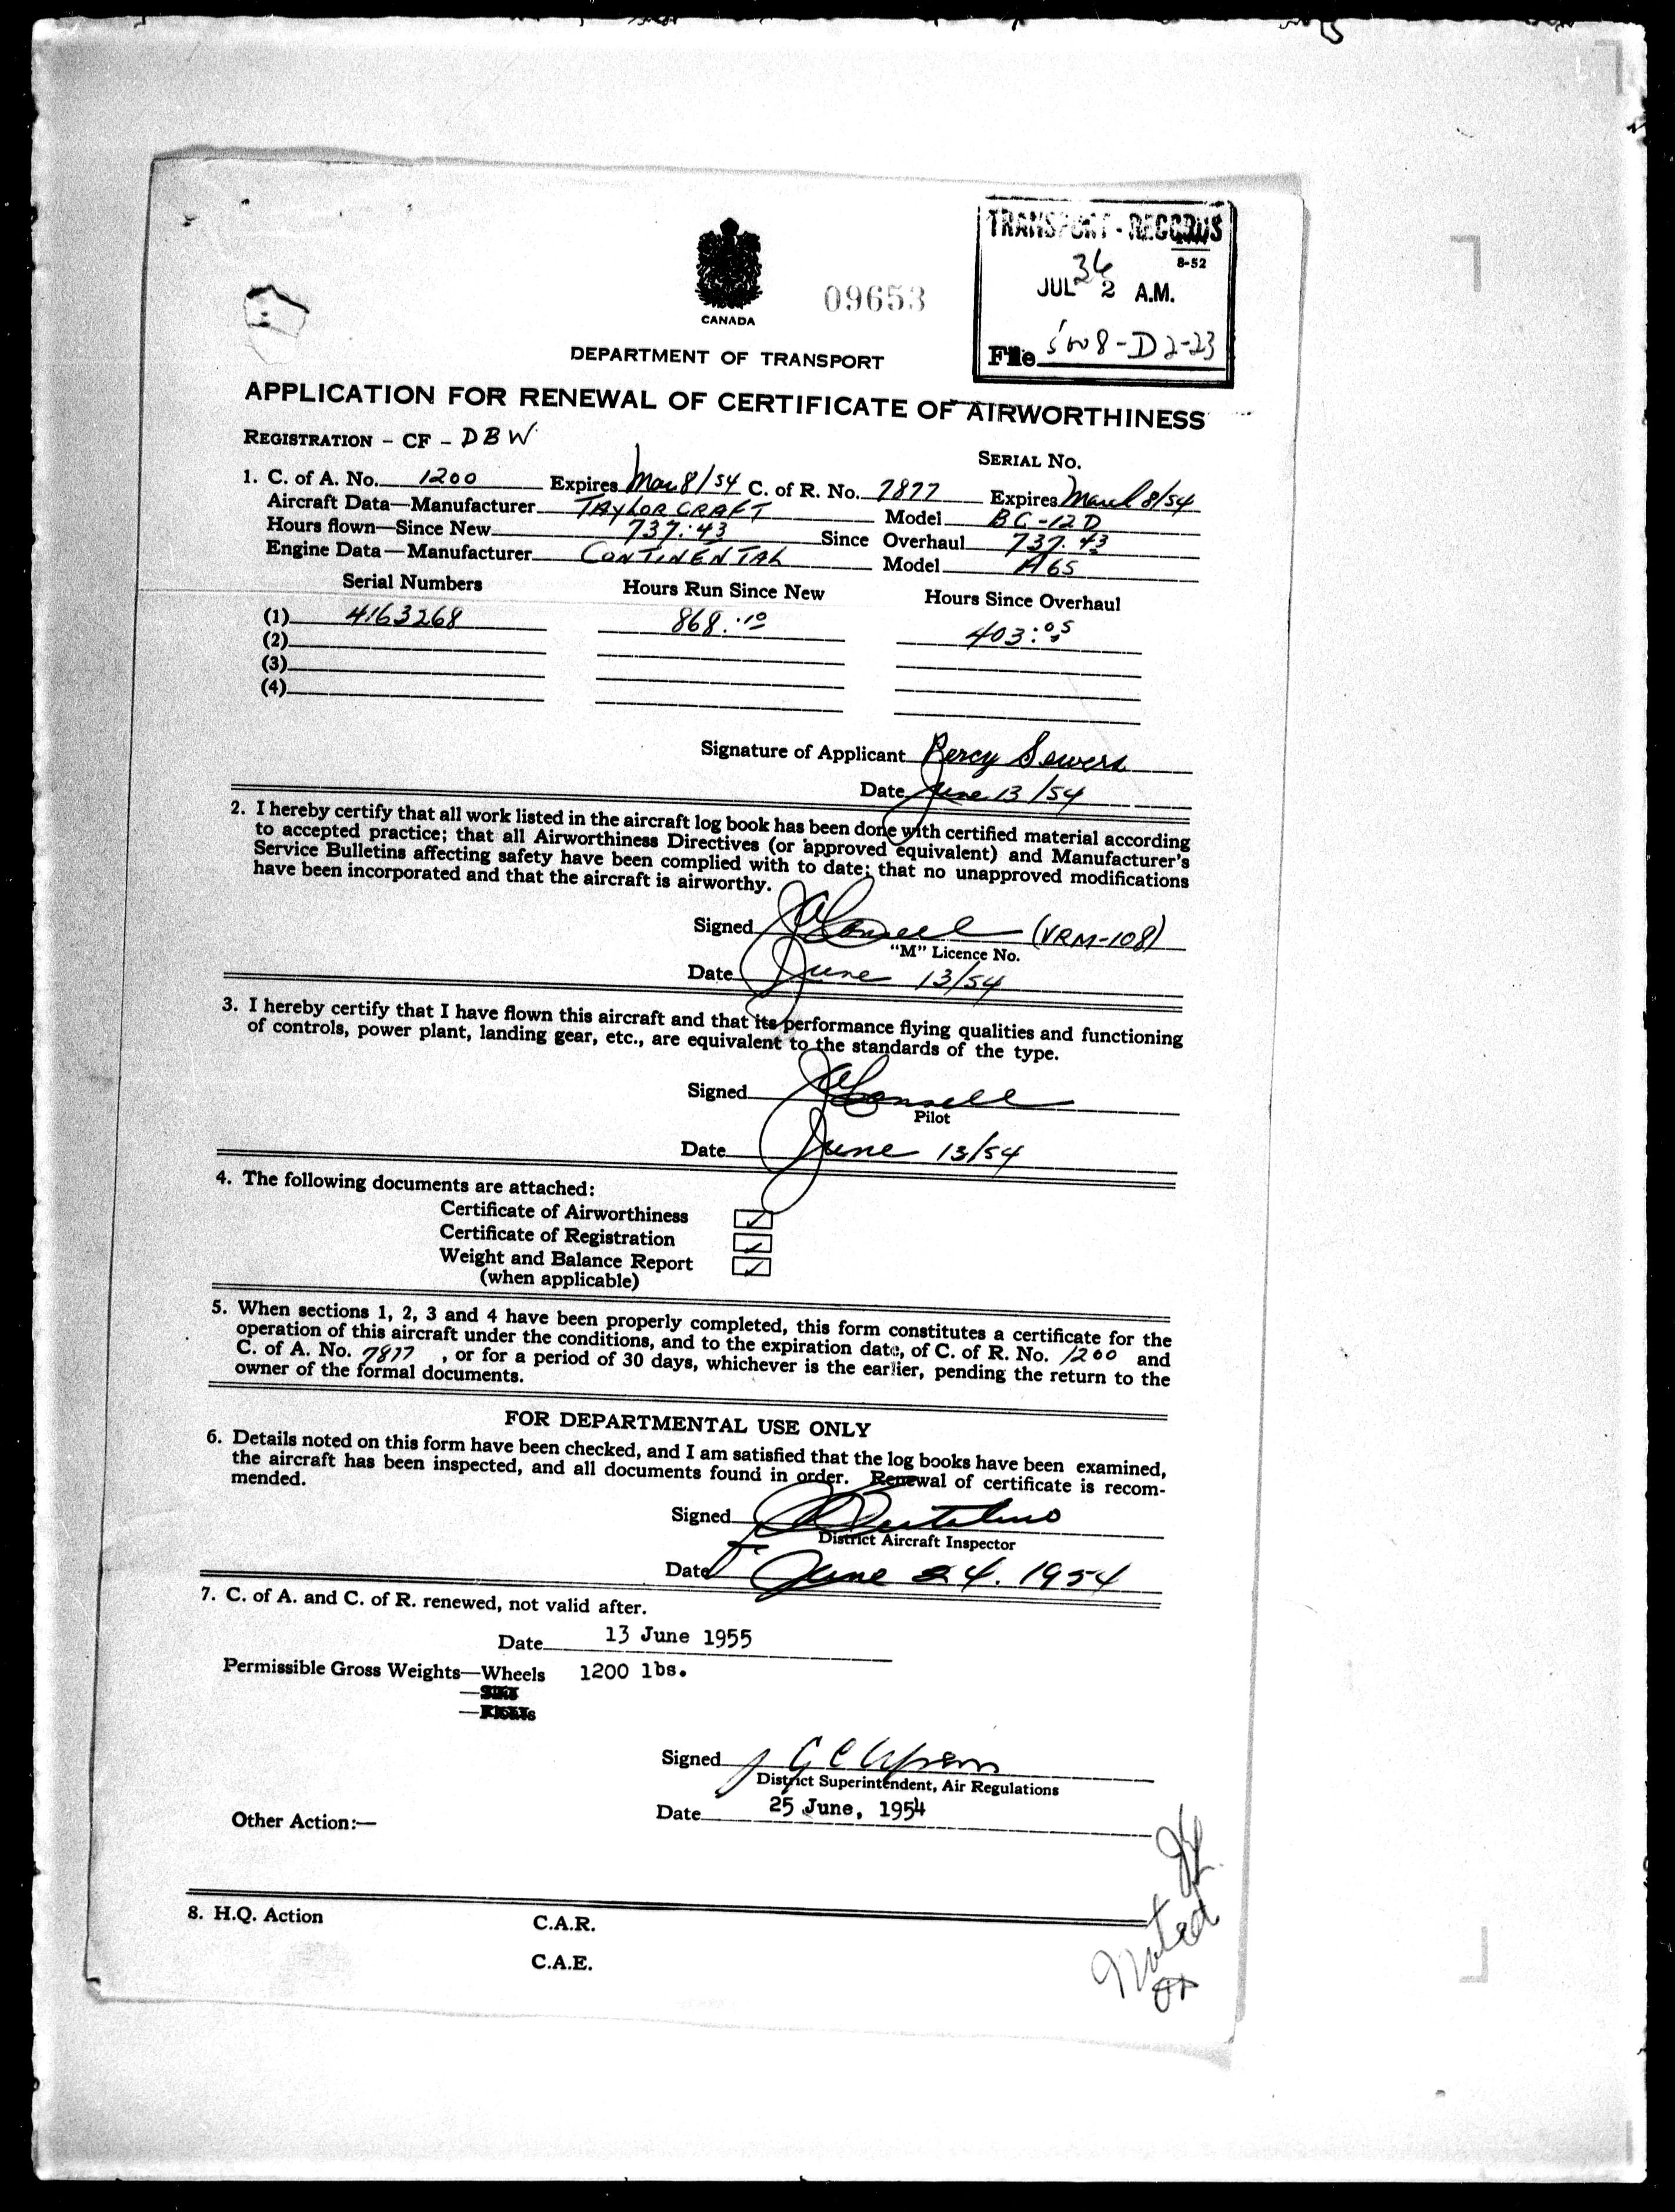 TRANSPORT - RECORDS
8-52
36
JUL 2 A.M.
File 5008-D2-23
CANADA
09653
DEPARTMENT OF TRANSPORT
APPLICATION FOR RENEWAL OF CERTIFICATE OF AIRWORTHINESS
REGISTRATION - CF - DBW
SERIAL No.
1. C. of A. No. 1200 Expires Mar 8/54 C. of R. No. 7877 Expires March 8/54
Aircraft Data—Manufacturer TAYLOR CRAFT Model BC-12D
Hours flown—Since New 737:43 Since Overhaul 737.43
Engine Data—Manufacturer CONTINENTAL Model A65
Serial Numbers Hours Run Since New Hours Since Overhaul
(1) 4163268 868:10 403:05
(2)
(3)
(4)
Signature of Applicant Percy Sewers
Date June 13/54
2. I hereby certify that all work listed in the aircraft log book has been done with certified material according
to accepted practice; that all Airworthiness Directives (or approved equivalent) and Manufacturer's
Service Bulletins affecting safety have been complied with to date; that no unapproved modifications
have been incorporated and that the aircraft is airworthy.
Signed (VRM-108)
"M" Licence No.
Date June 13/54
3. I hereby certify that I have flown this aircraft and that its performance flying qualities and functioning
of controls, power plant, landing gear, etc., are equivalent to the standards of the type.
Signed
Pilot
Date June 13/54
4. The following documents are attached:
Certificate of Airworthiness ✓
Certificate of Registration ✓
Weight and Balance Report ✓
(when applicable)
5. When sections 1, 2, 3 and 4 have been properly completed, this form constitutes a certificate for the
operation of this aircraft under the conditions, and to the expiration date, of C. of R. No. 1200 and
C. of A. No. 7877 , or for a period of 30 days, whichever is the earlier, pending the return to the
owner of the formal documents.
FOR DEPARTMENTAL USE ONLY
6. Details noted on this form have been checked, and I am satisfied that the log books have been examined,
the aircraft has been inspected, and all documents found in order. Renewal of certificate is recom-
mended.
Signed
District Aircraft Inspector
Date June 24. 1954
7. C. of A. and C. of R. renewed, not valid after.
Date 13 June 1955
Permissible Gross Weights—Wheels 1200 lbs.
Signed
District Superintendent, Air Regulations
Date 25 June, 1954
Other Action:—
8. H.Q. Action C.A.R.
C.A.E.
Noted